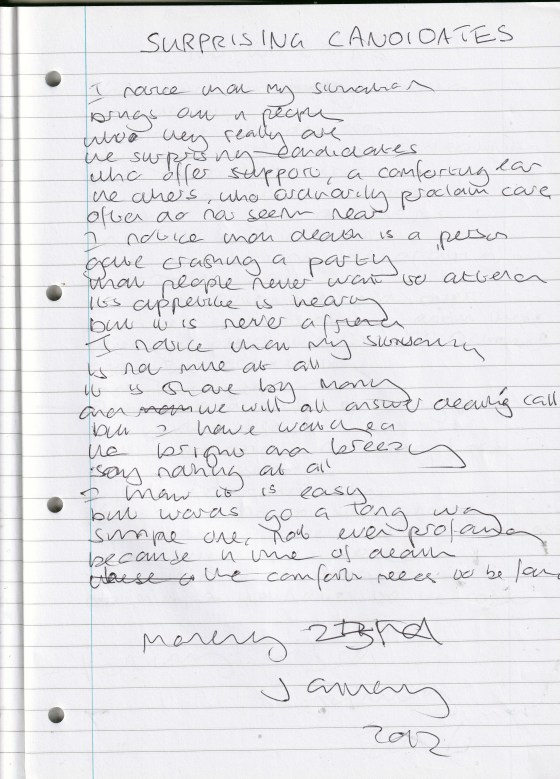 SURPRISING CANDIDATES
I notice that my situation
brings out in people
who they really are
the surprising candidates
who offer support, a comforting ear
the others, who ordinarily proclaim care
often do not seem near
I notice that death is a person
gate crashing a party
that people never want to attend
its appetite is hearty
but it is never a friend
I notice that my
is not mine at all
it is share by many
and we will all answer deaths call
but I have watched
the bright and breezy
say nothing at all
I know it is easy
but words go a long way
simple one, not even profound
because in time of death
the comfort needs to be
January
2012